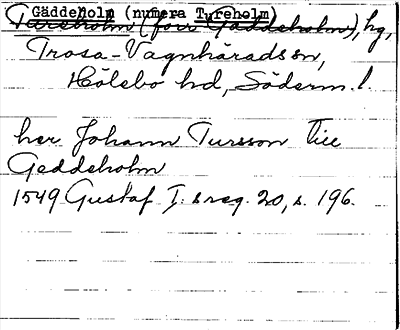 Gäddeholm (numera Tureholm)
Tureholm (förr Gäddeholm), hg,
Trosa-Vagnhäradssn,
Hölebo hd, Söderm. l.
her Johann Tursson till
Geddeholm
1549 Gustaf I:s reg. 20, s. 196.